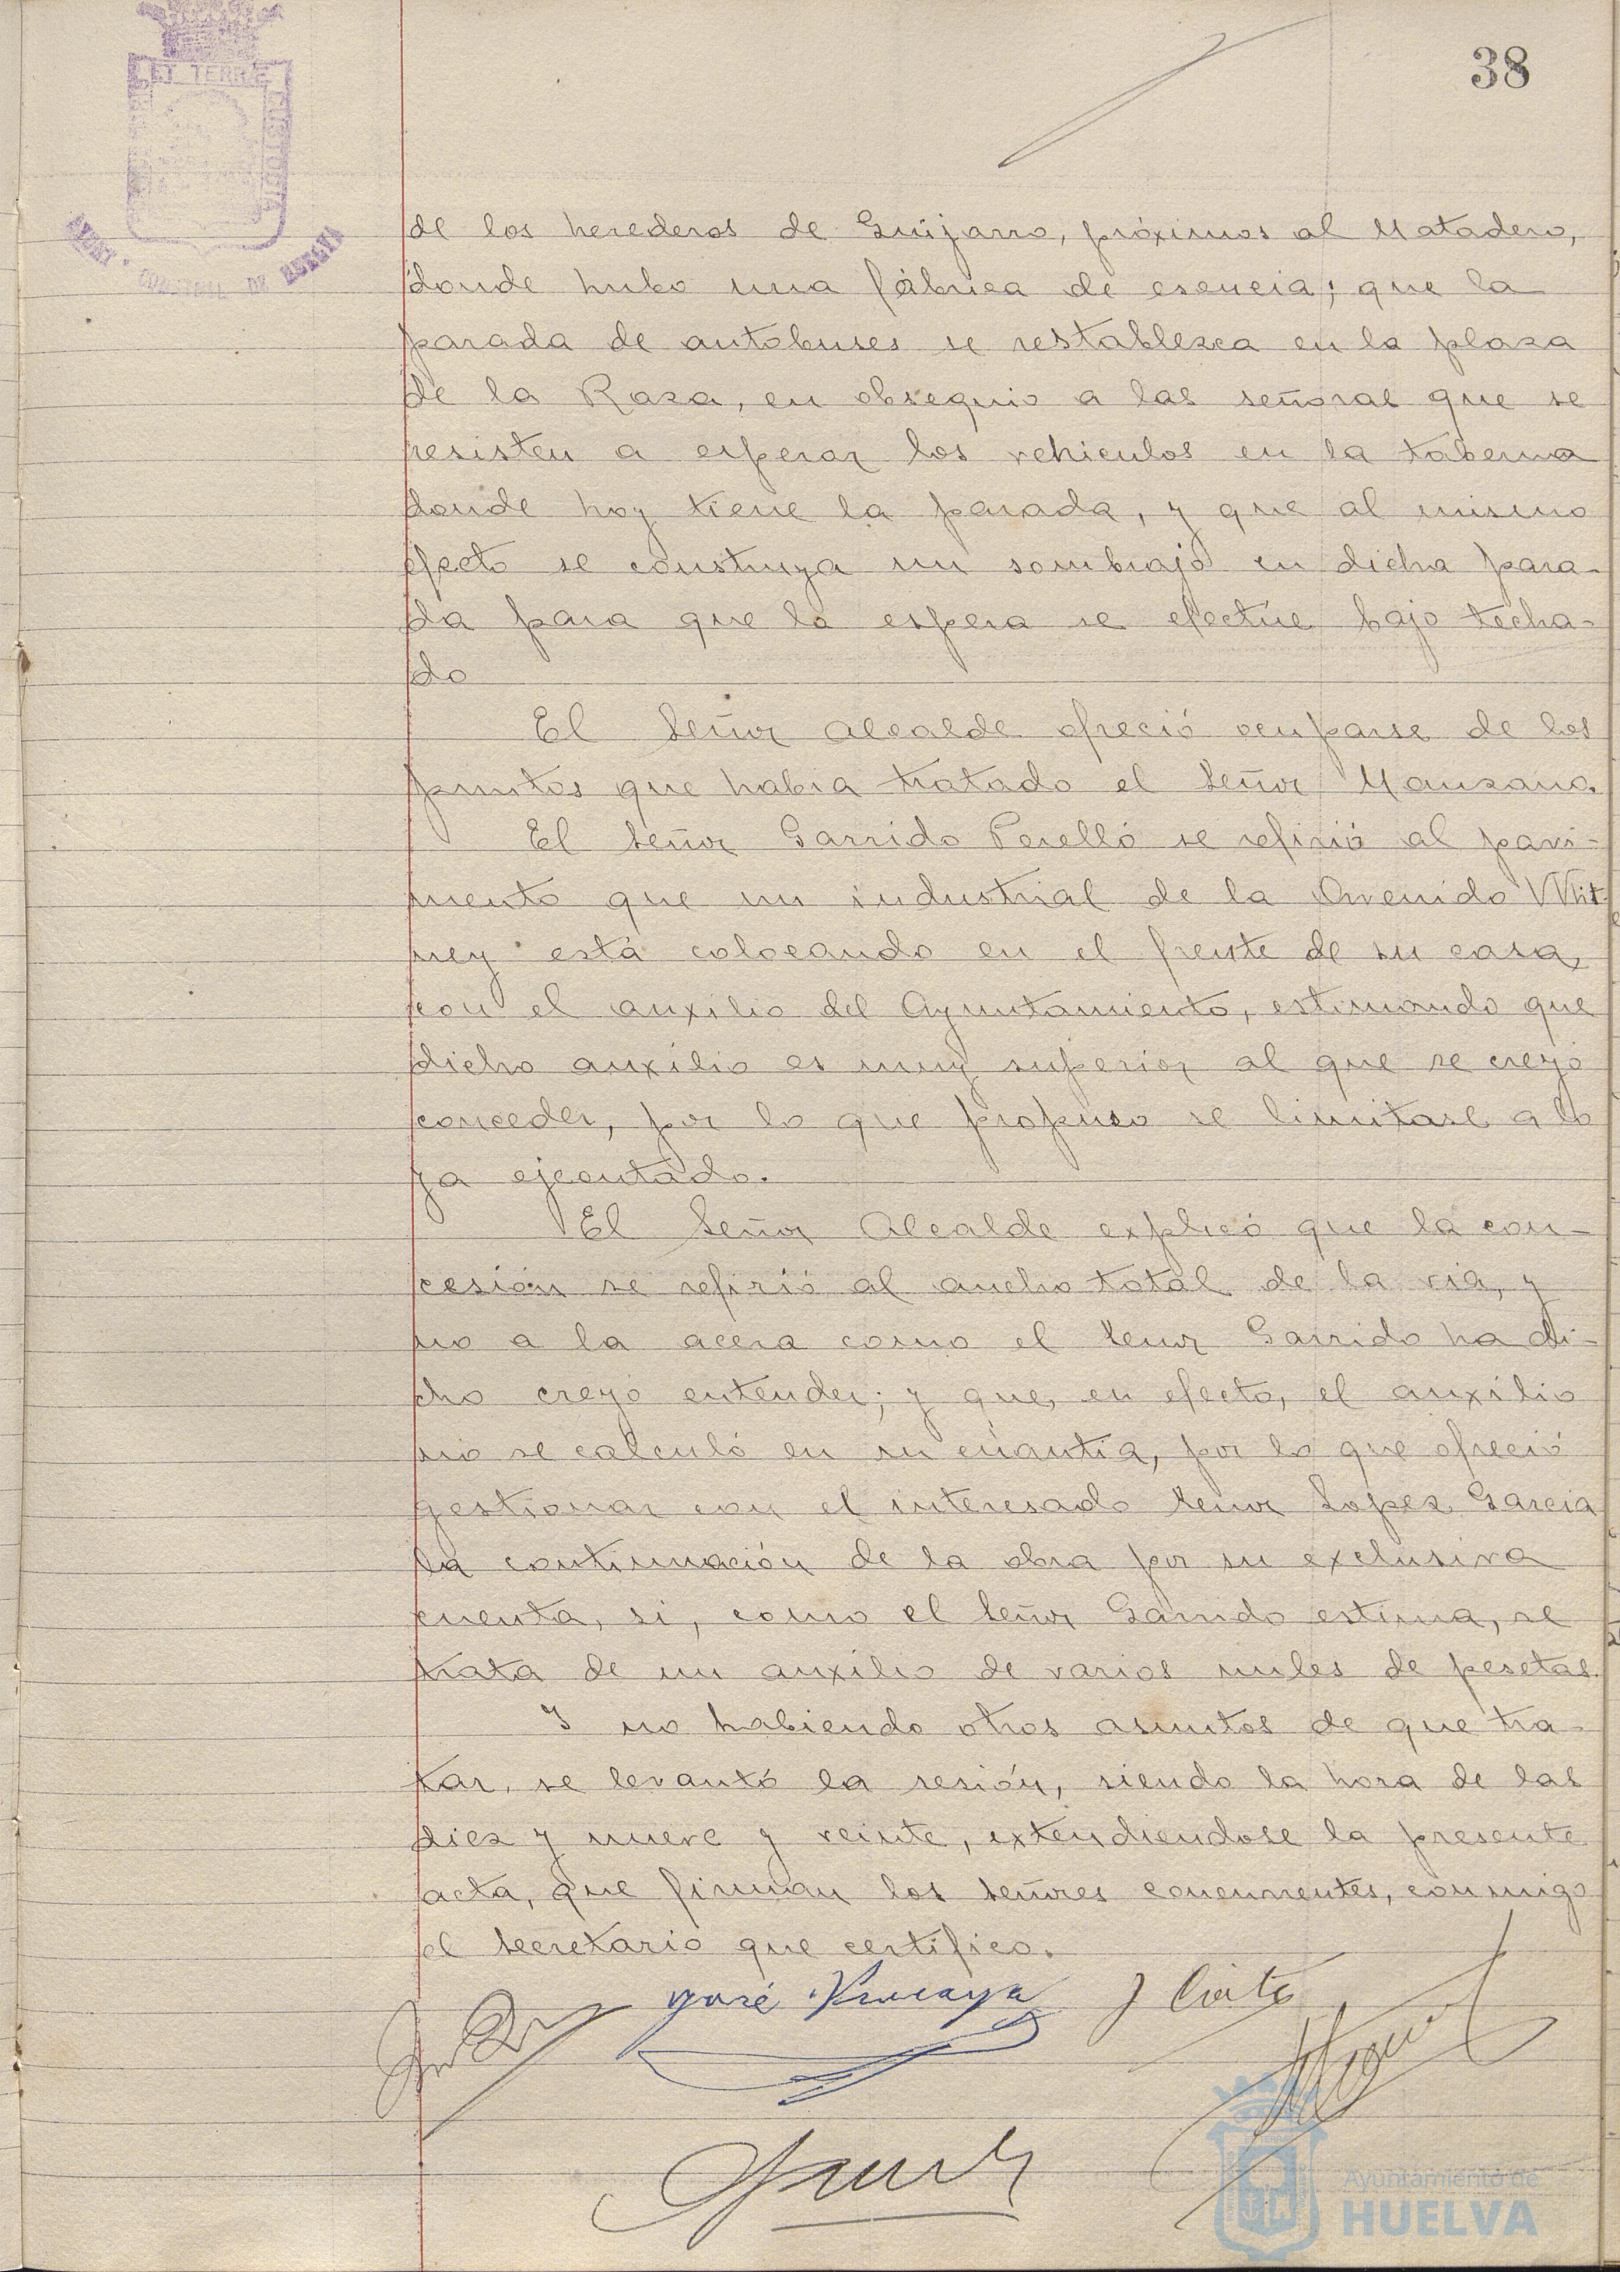 38
ET TERRÆ
CUSTODIA
de los herederos de Guijarro, próximos al Matadero,
donde hubo una fábrica de esencia; que la
parada de autobuses se restablezca en la plaza
de la Raza, en obsequio a las señoras que se
resisten a esperar los vehiculos en la taberna
donde hoy tiene la parada, y que al mismo
efecto se construya un sombrajo en dicha para-
da para que la espera se efectúe bajo techa-
do
El Señor Alcalde ofreció ocuparse de los
puntos que habia tratado el Señor Manzano.
El Señor Garrido Perelló se refirió al pavi-
mento que un industrial de la Avenida Whit-
ney está colocando en el frente de su casa,
con el auxilio del Ayuntamiento, estimando que
dicho auxilio es muy superior al que se creyó
conceder, por lo que propuso se limitase a lo
ya ejecutado.
El Señor Alcalde explicó que la con-
cesión se refirió al ancho total de la via, y
no a la acera como el Senor Garrido ha di-
cho creyó entender; y que, en efecto, el auxilio
no se calculó en su cuantia, por lo que ofreció
gestionar con el interesado Senor Lopez Garcia
la continuación de la obra por su exclusiva
cuenta, si, como el Señor Garrido estima, se
trata de un auxilio de varios miles de pesetas.
Y no habiendo otros asuntos de que tra-
tar, se levantó la sesión, siendo la hora de las
diez y nueve y veinte, extendiendose la presente
acta, que firman los Señores concurrentes, conmigo
el Secretario que certifico.
José
Ayuntamiento de
HUELVA